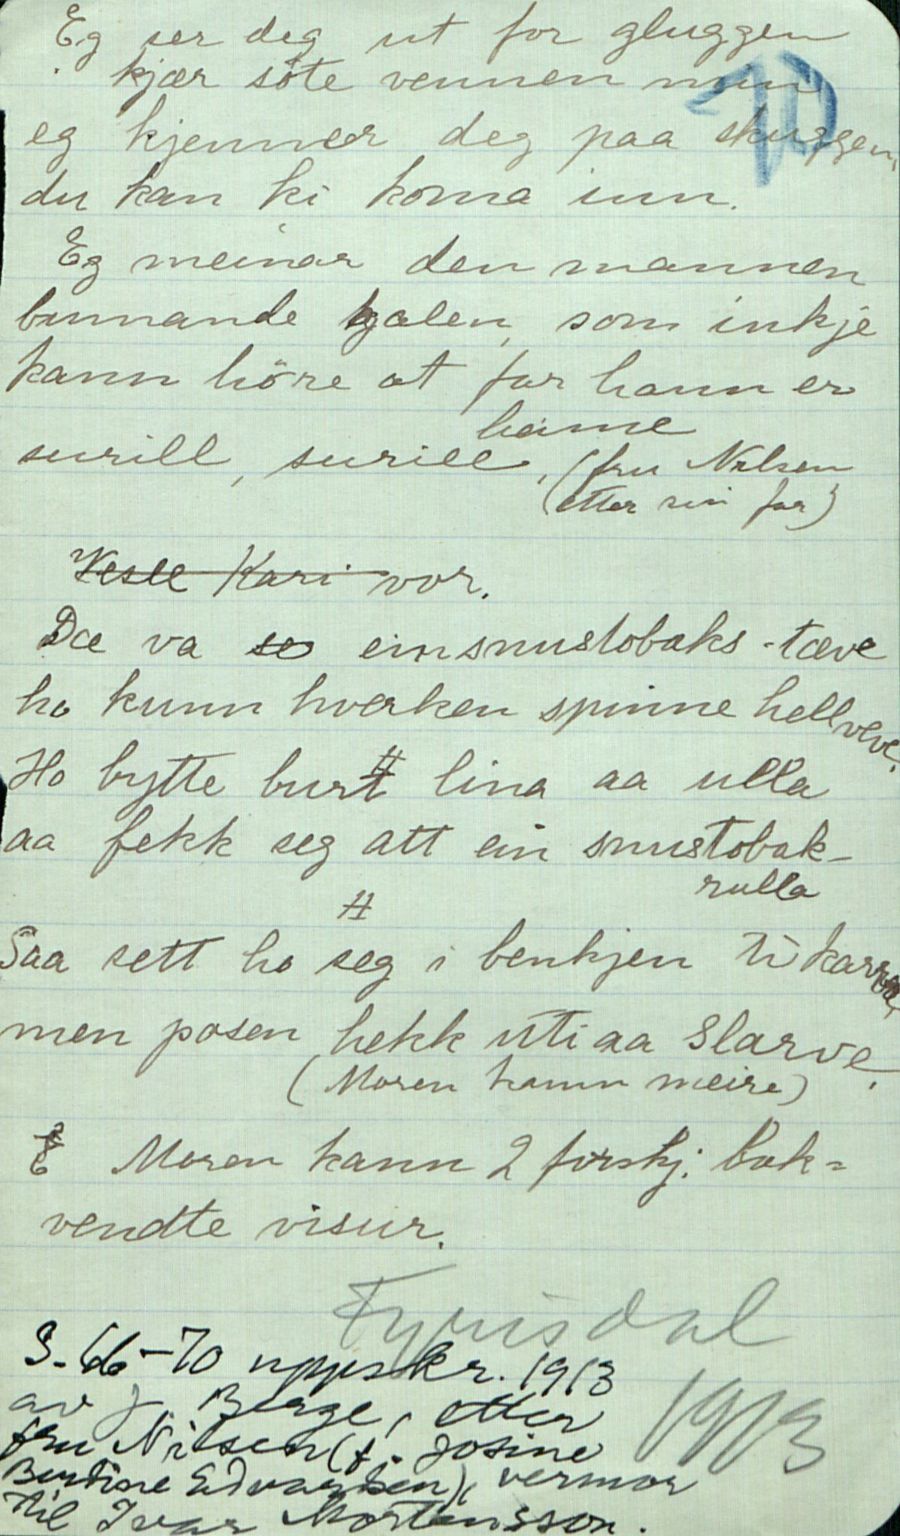 Eg ser deg ut for gluggen
kjær söte vennen min
70
eg kjenner deg paa skuggen,
du kan ki koma inn.
Eg meinar den mannen
bunnande galen, som inkje
kann höre at far hann er
heime
surill, surill, (fru Nilsen
(etter sin far)
Vesle Kari vor.
Dæ va so ein snustobaks-tæve
ho kunn hverken spinne hell veve.
Ho bytte burt lina aa ulla
aa fekk seg att ein snustobak-
rulla
Saa sett ho seg i benkjen ti
men posen hekk uti aa Slarve.
(Moren kann meire)
Moren kann 2 forskj. bak-
vendte visur.
Fyrisdal
1913
S. 66-70 uppskr. 1913
av J. Berge, etter
fru Nilsen (f. Josine
Bertine Edvardsen), vermor
til Ivar Mortensson.